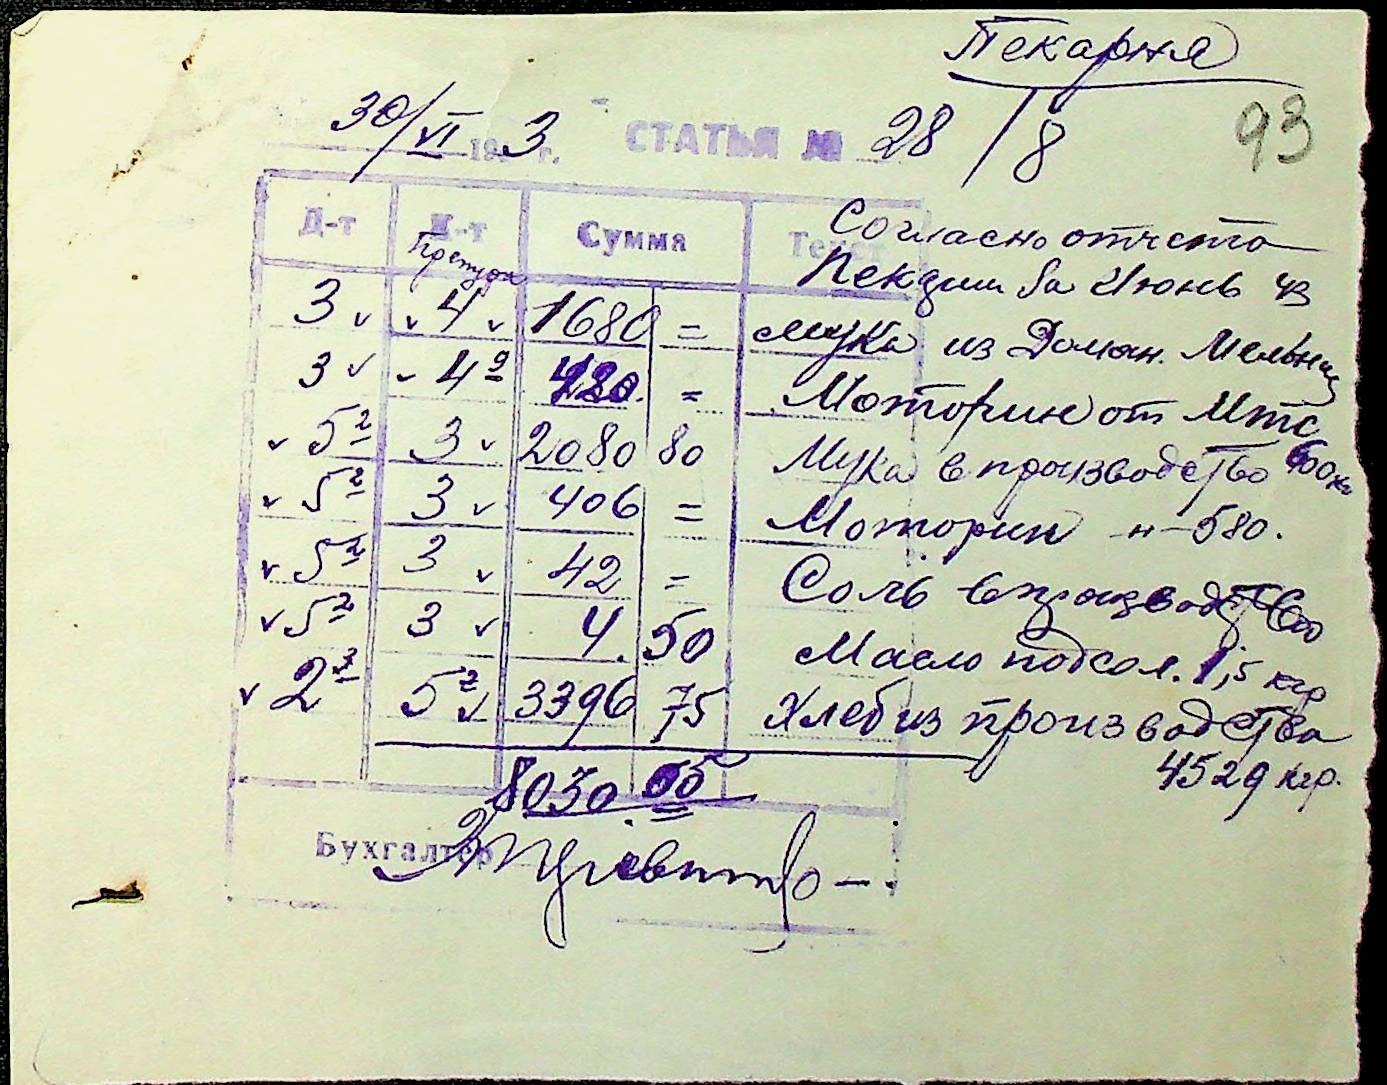 Пекарня
93
30/VI 19 3 г. СТАТЬЯ № 28/8
Д-т К-т Сумма Текст
Согласно отчета
за Июнь 43
3 4 1680 = Мука из Доман. Мельниц
3 4 420 = от МТС
5 2 3 2080 80 Мука в производство 600 кг
5 2 3 406 = -н- 580.
5 2 3 42 = Соль в производство
5 2 3 4. 50 Масло подсол. 1,5 кгр
2 5 2 3396 75 Хлеб из производства
4529 кгр.
8030 05
Бухгалтер